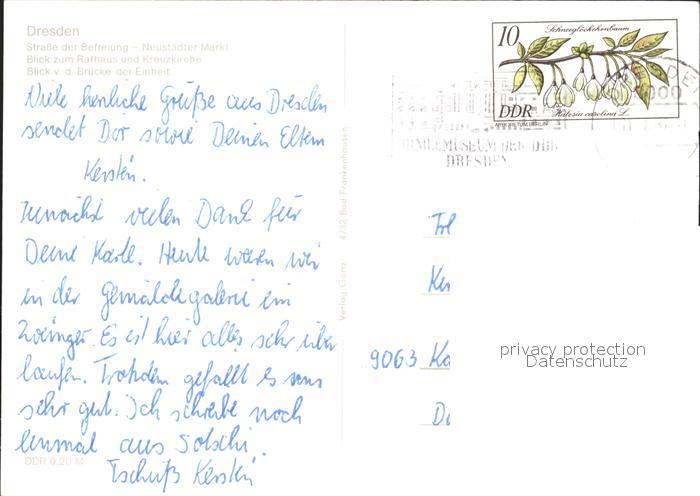 Dresden
Straße der Befreiung – Neustädter Markt
Blick zum Rathaus und Kreuzkirche
Blick v. d. Brücke der Einheit
Viele herzliche Grüße aus Dresden
sendet Dir sowie Deinen Eltern
Kerstin.
Zunächst vielen Dank für
Deine Karte. Heute waren wir
in der Gemäldegalerie im
Zwinger. Es ist hier alles sehr über
laufen. Trotzdem gefällt es uns
sehr gut. Ich schreibe noch
einmal aus Sotschi.
Tschüß Kerstin
DDR 0,20 M
Verlag Gartz 4732 Bad Frankenhausen
10
Schneeglöckchenbaum
DDR
Halesia carolina L.
ARMEEMUSEUM DER DDR
DRESDEN
9063 Ka
privacy protection
Datenschutz